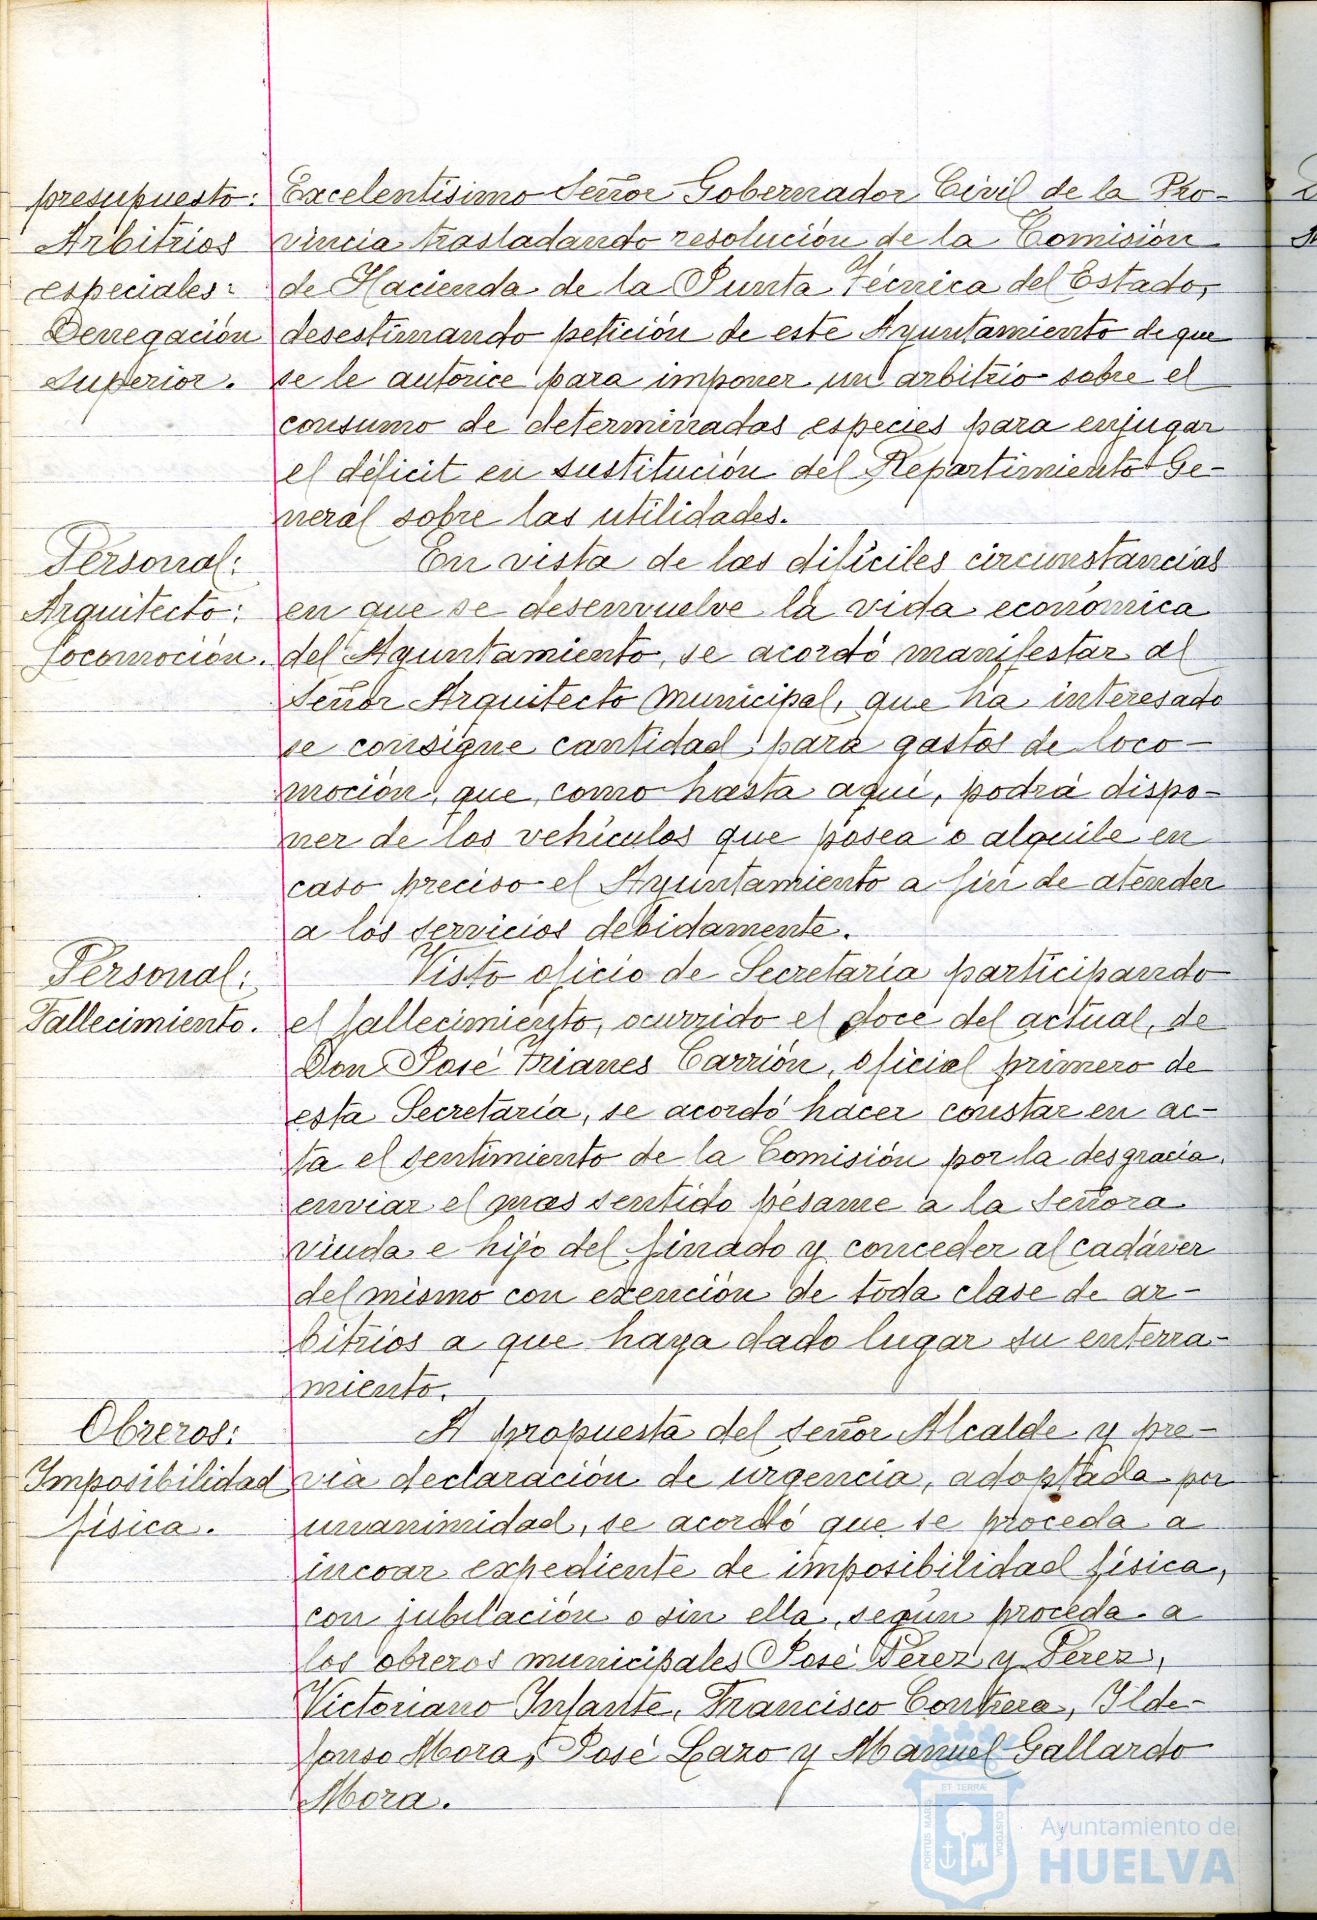 presupuesto:
Arbitrios
especiales:
Denegación
superior.
Excelentísimo Señor Gobernador Civil de la Pro-
vincia trasladando resolución de la Comisión
de Hacienda de la Junta Técnica del Estado,
desestimando petición de este Ayuntamiento de que
se le autorice para imponer un arbitrio sobre el
consumo de determinadas especies para enjugar
el déficit en sustitución del Repartimiento Ge-
neral sobre las utilidades.
Personal:
Arquitecto:
Locomoción.
En vista de las difíciles circunstancias
en que se desenvuelve la vida económica
del Ayuntamiento, se acordó manifestar al
Señor Arquitecto municipal, que ha interesado
se consigne cantidad para gastos de loco-
moción, que, como hasta aquí, podrá dispo-
ner de los vehículos que posea o alquile en
caso preciso el Ayuntamiento a fin de atender
a los servicios debidamente.
Personal:
Fallecimiento.
Visto oficio de Secretaría participando
el fallecimiento, ocurrido el doce del actual, de
Don José Frianes Carrión, oficial primero de
esta Secretaría, se acordó hacer constar en ac-
ta el sentimiento de la Comisión por la desgracia,
enviar el mas sentido pésame a la Señora
viuda e hijo del finado y conceder al cadáver
del mismo con exención de toda clase de ar-
bitrios a que haya dado lugar su enterra-
miento.
Obreros:
Imposibilidad
física.
A propuesta del señor Alcalde y pre-
via declaración de urgencia, adoptada por
unanimidad, se acordó que se proceda a
incoar expediente de imposibilidad física,
con jubilación o sin ella, según proceda a
los obreros municipales José Pérez y Pérez,
Victoriano Infante, Francisco Contrera, Ilde-
fonso Mora, José Lazo y Manuel Gallardo
Mora.
ET TERRÆ
PORTUS MARIS
CUSTODIA
Ayuntamiento de
HUELVA